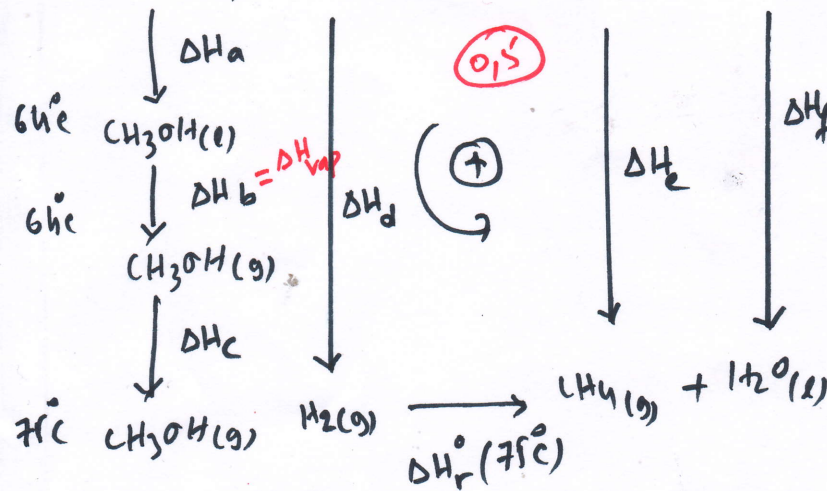 ΔHa
0,5
64°C CH3OH(l)
ΔHb = ΔHvap
+
ΔHd
ΔHe
ΔHf
64°C
CH3OH(g)
ΔHc
75°C CH3OH(g) H2(g) CH4(g) + H2O(l)
ΔH°r (75°C)